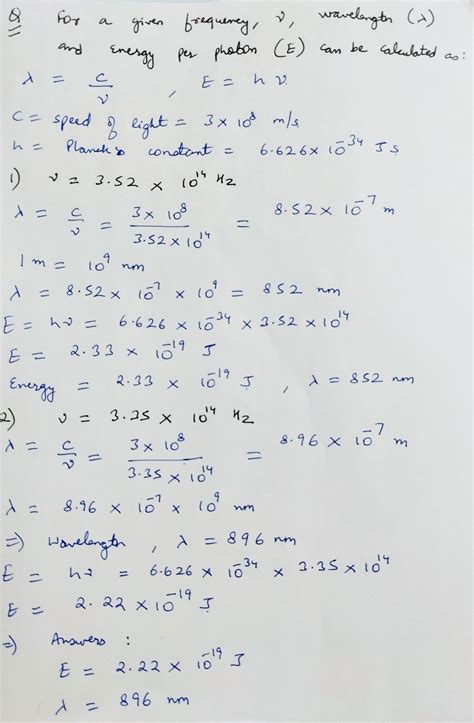 Q For a given frequency, ν, wavelength (λ)
and energy per photon (E) can be calculated as:
λ = c/ν , E = h ν
C = speed of light = 3 × 10⁸ m/s
h = Planck's constant = 6.626 × 10⁻³⁴ J s
1) ν = 3.52 × 10¹⁴ Hz
λ = c/ν = 3 × 10⁸ / 3.52 × 10¹⁴ = 8.52 × 10⁻⁷ m
1 m = 10⁹ nm
λ = 8.52 × 10⁻⁷ × 10⁹ = 852 nm
E = hν = 6.626 × 10⁻³⁴ × 3.52 × 10¹⁴
E = 2.33 × 10⁻¹⁹ J
Energy = 2.33 × 10⁻¹⁹ J , λ = 852 nm
2) ν = 3.35 × 10¹⁴ Hz
λ = c/ν = 3 × 10⁸ / 3.35 × 10¹⁴ = 8.96 × 10⁻⁷ m
λ = 8.96 × 10⁻⁷ × 10⁹ nm
⇒ Wavelength , λ = 896 nm
E = hν = 6.626 × 10⁻³⁴ × 3.35 × 10¹⁴
E = 2.22 × 10⁻¹⁹ J
⇒ Answers :
E = 2.22 × 10⁻¹⁹ J
λ = 896 nm